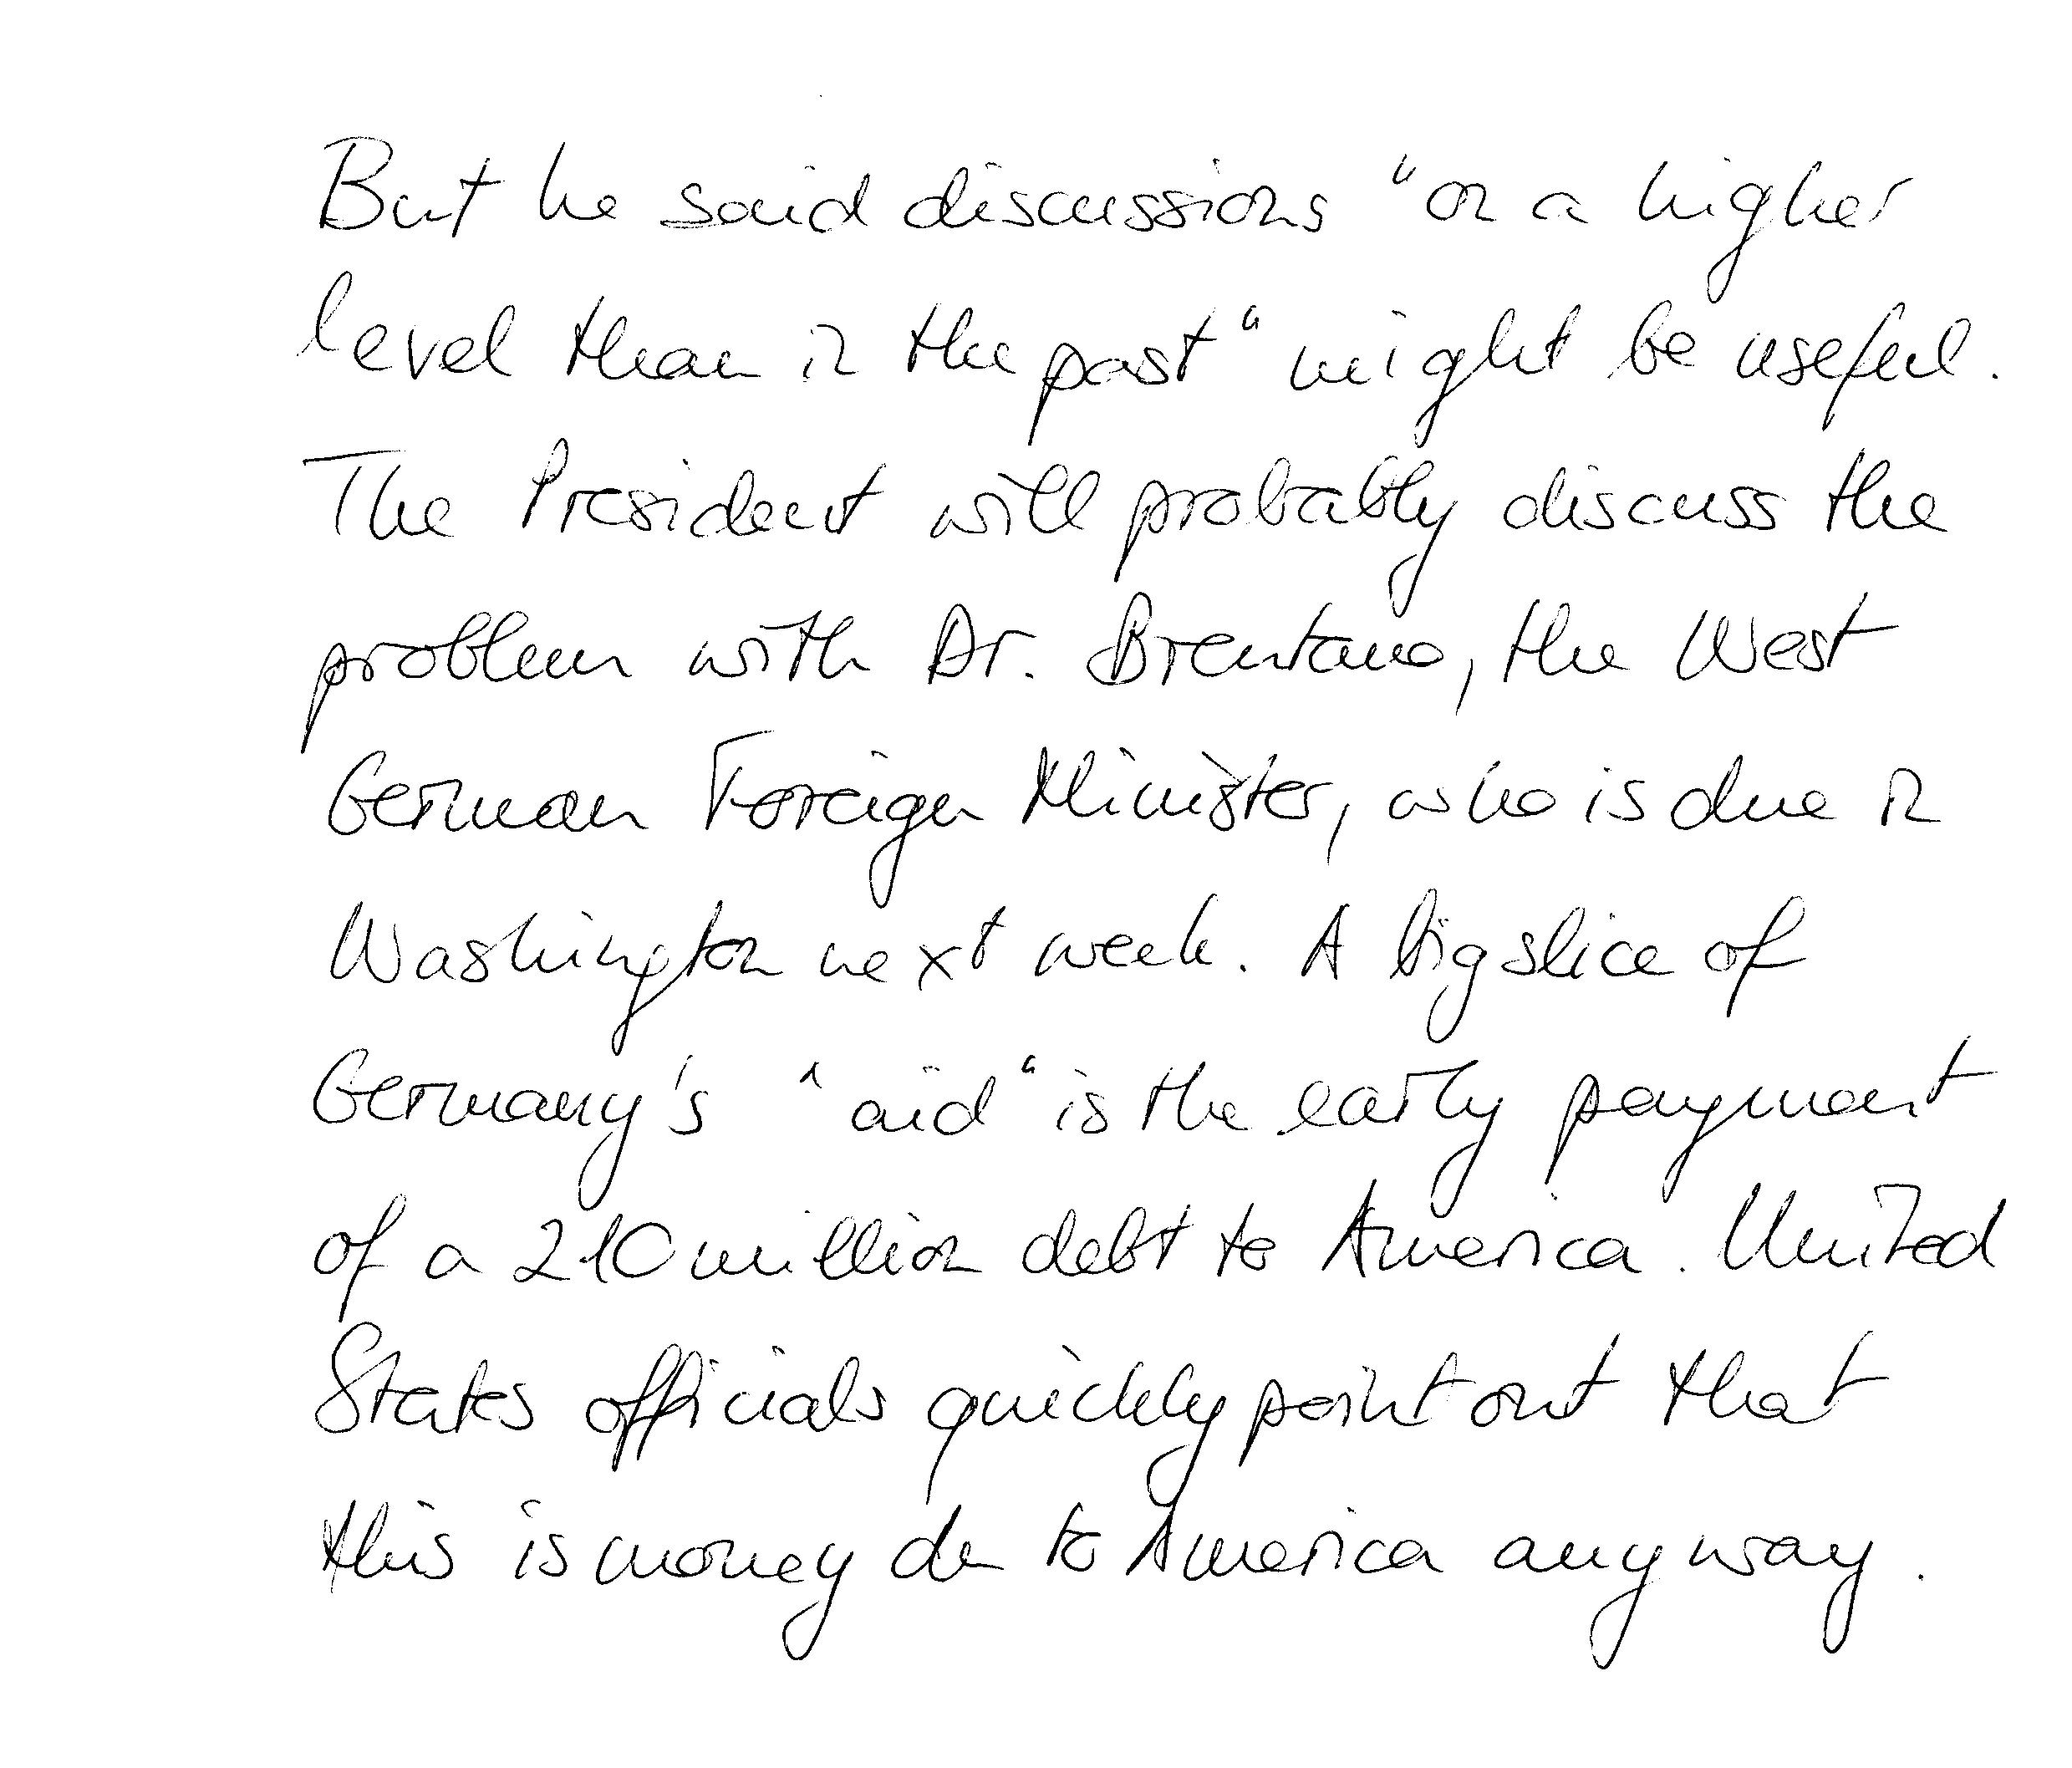 But he said discussions "on a higher
level than in the past" might be useful.
The President will probably discuss the
problem with Dr. Brentano, the West
German Foreign Minister, who is due in
Washington next week. A big slice of
Germany's "aid" is the early payment
of a 210 million debt to America. United
States officials quickly point out that
this is money due to America anyway.